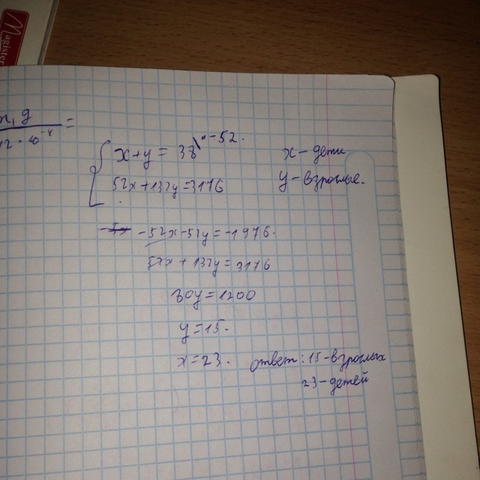 Magister
x+y=38 |·-52.
52x+132y=3176
x-дети
y-взрослые.
-52x-52y=-1976.
52x+132y=3176
80y=1200
y=15.
x=23.
ответ: 15-взрослых
23-детей